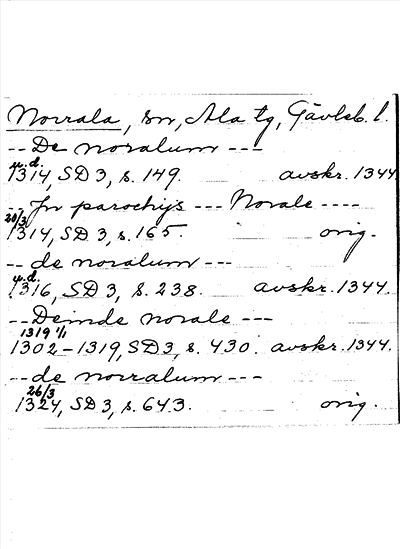 Norrala, sn, Ala tg, Gävleb. l.
-- De noralum ---
u.d.
1314, SD 3, s. 149. avskr. 1344
-- Jn parochijs --- Norale ----
20/3
1314, SD 3, s. 165. orig.
-- de noralum ---
u.d.
1316, SD 3, s. 238. avskr. 1344.
-- Deinde norale ---
1319 1/1
1302-1319, SD 3, s. 430. avskr. 1344.
-- de norralum ---
26/3
1324, SD 3, s. 643. orig.